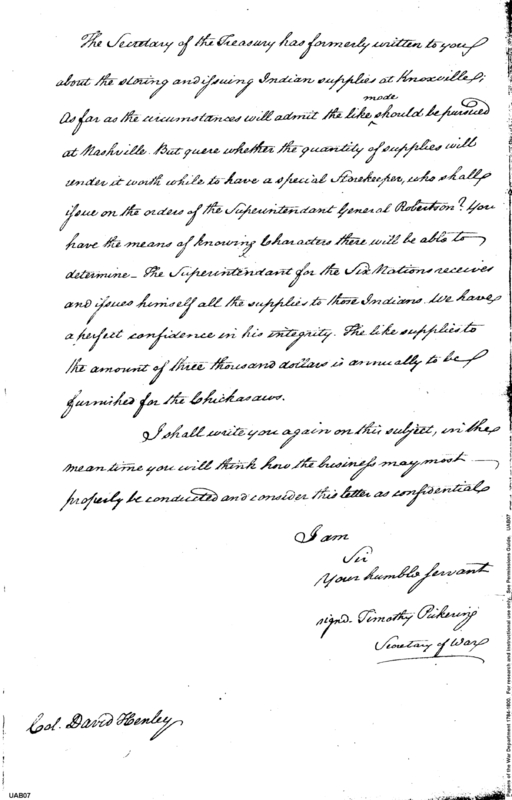 The Secretary of the Treasury has formerly written to you
about the storing and issuing Indian supplies at Knoxville;
mode
As far as the circumstances will admit the like ^ should be pursued
at Nashville. But quere whether the quantity of supplies will
render it worth while to have a special Storekeeper, who shall
issue on the orders of the Superintendant General Robertson? You
have the means of knowing Characters there will be able to
determine – The Superintendant for the Six Nations receives
and issues himself all the supplies to those Indians. We have
a perfect confidence in his integrity. The like supplies to
the amount of three thousand dollars is annually to be
furnished for the Chickasaws.
I shall write you again on this subject, in the
mean time you will think how the business may most
properly be conducted and consider this letter as confidential
I am
Sir
Your humble servant
signd. Timothy Pickering
Secretary of War
Col. David Henley
UAB07
Papers of the War Department 1784-1800. For research and instructional use only. See Permissions Guide. UAB07